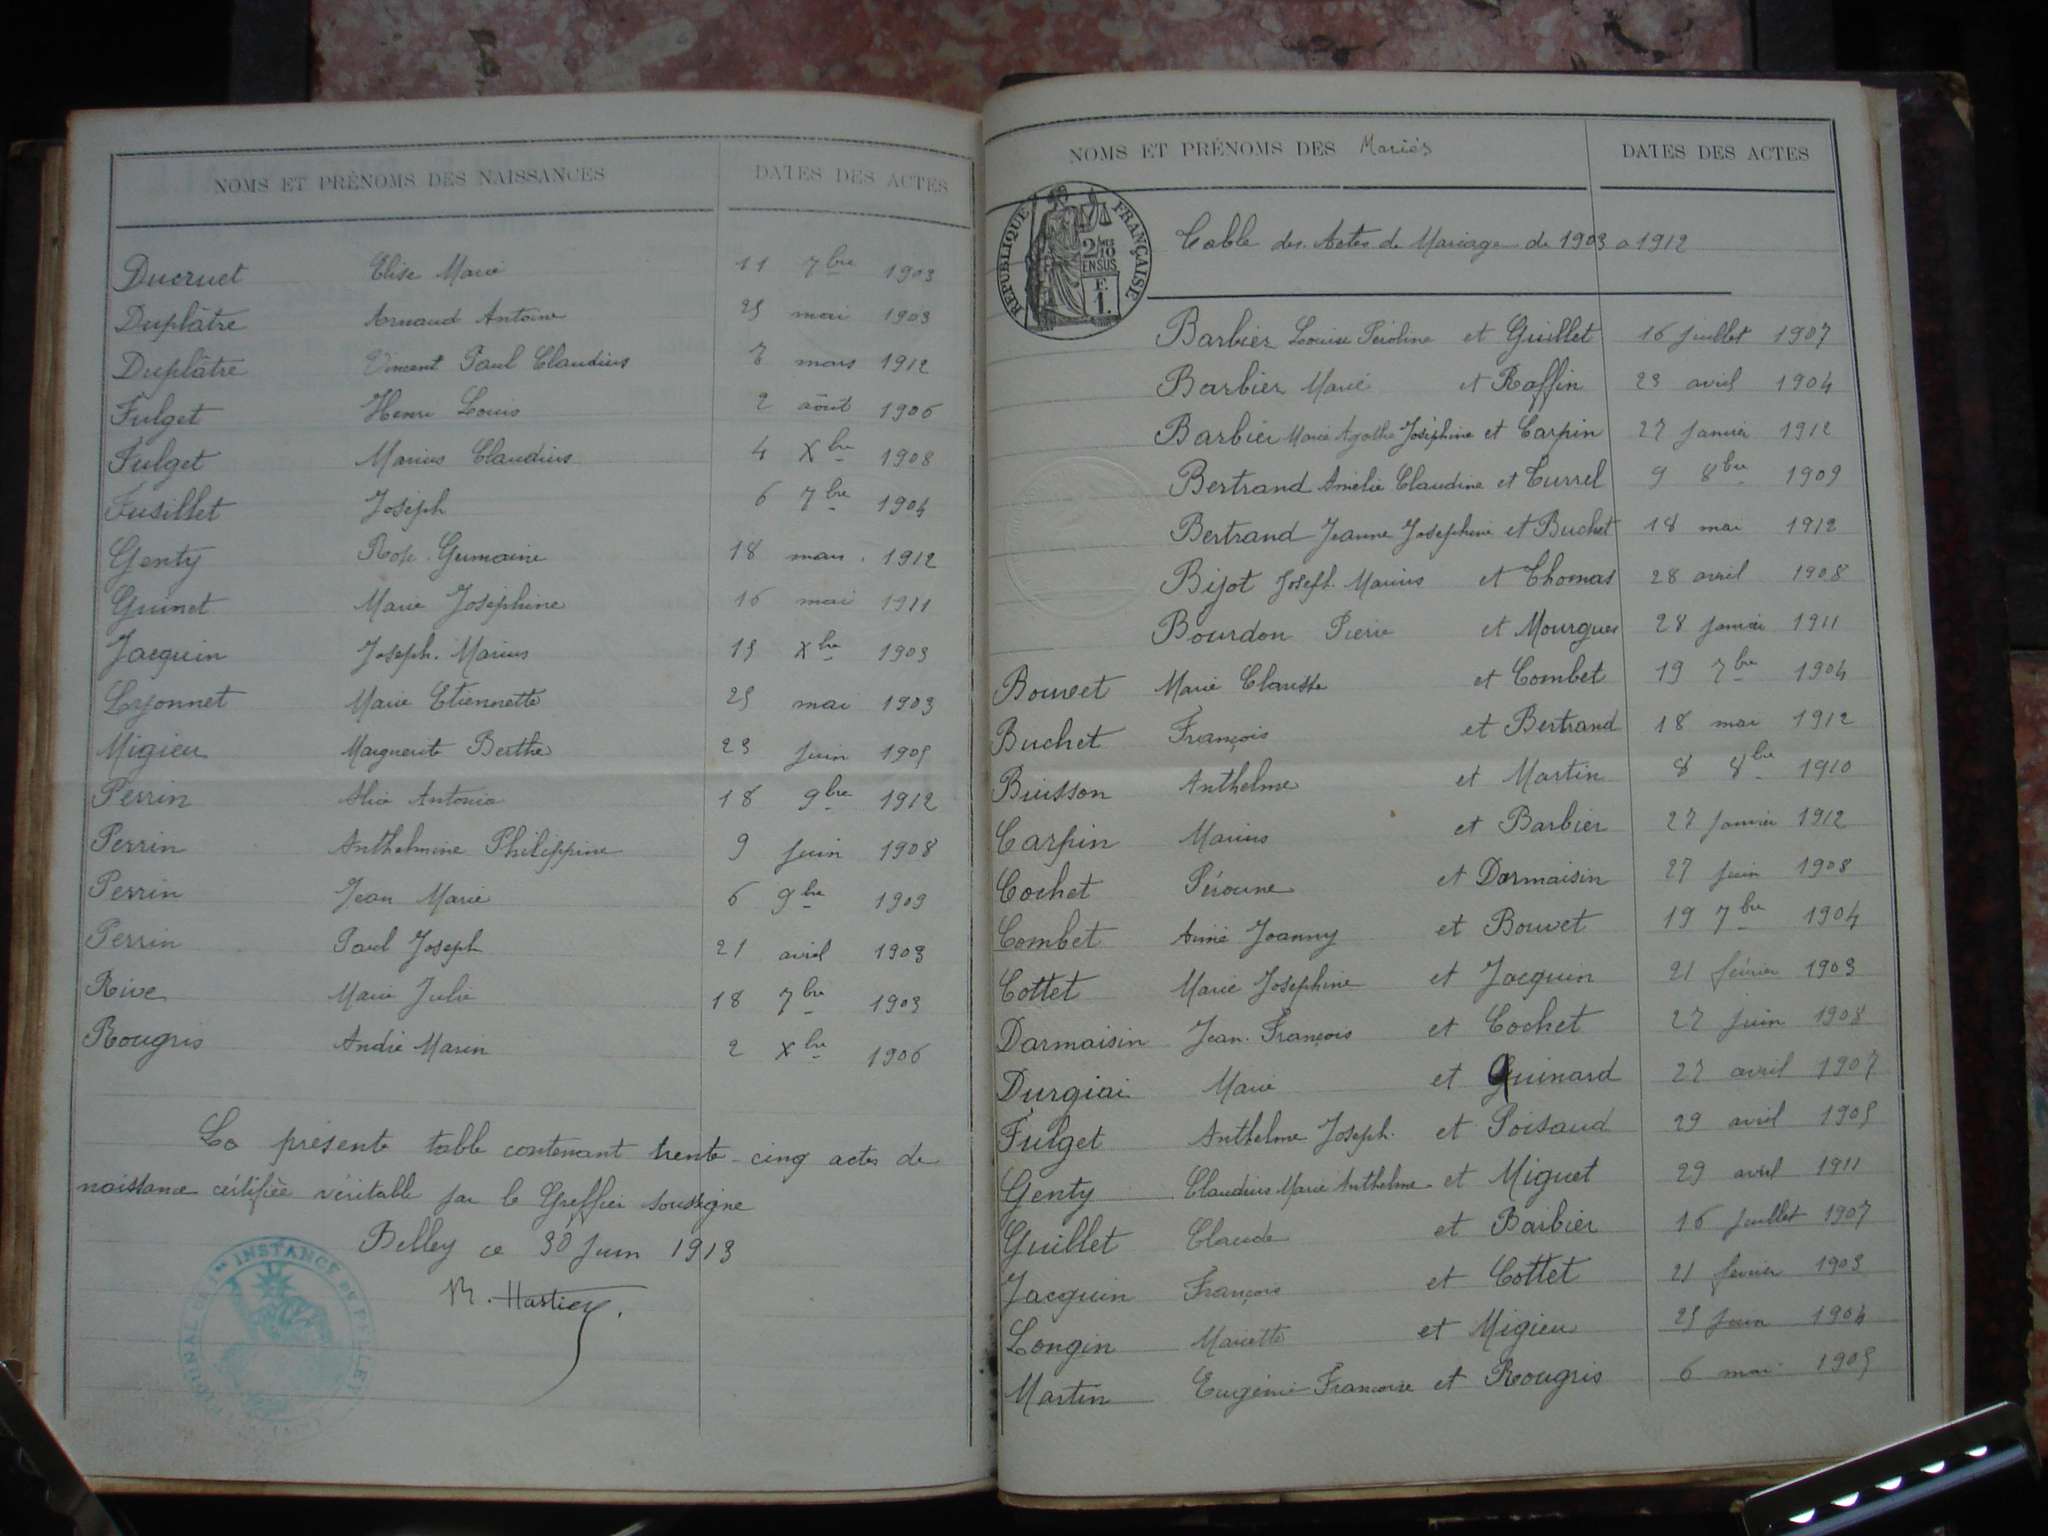 NOMS ET PRÉNOMS DES NAISSANCES DATES DES ACTES
Ducruet Elise Marie 11 7bre 1903
Duplâtre Arnaud Antoine 25 mai 1903
Duplâtre Vincent Paul Claudius 7 mars 1912
Fulget Henri Louis 2 août 1906
Fulget Marius Claudius 4 Xbre 1908
Fusillet Joseph 6 7bre 1904
Genty Rose Germaine 18 mars 1912
Guinet Marie Joséphine 16 mai 1911
Jacquin Joseph Marius 15 Xbre 1903
Lyonnet Marie Etiennette 25 mai 1903
Migieu Marguerite Berthe 23 juin 1905
Perrin Alice Antonia 18 9bre 1912
Perrin Anthelmine Philippine 9 juin 1908
Perrin Jean Marie 6 9bre 1909
Perrin Paul Joseph 21 avril 1903
Rive Marie Julie 18 7bre 1903
Rougris André Marin 2 Xbre 1906
La présente table contenant trente-cinq actes de
naissance certifiée véritable par le Greffier soussigné
Belley ce 30 Juin 1913
TRIBUNAL DE 1re INSTANCE DE BELLEY
NOMS ET PRÉNOMS DES Mariés DATES DES ACTES
RÉPUBLIQUE FRANÇAISE
2/10 EN SUS
F. 1.
Table des Actes de Mariage de 1903 a 1912
Barbier Louise Péroline et Guillet 16 juillet 1907
Barbier Marie et Raffin 23 avril 1904
Barbier Marie Agathe Joséphine et Carpin 27 janvier 1912
Bertrand Amélie Claudine et Turrel 9 8bre 1909
Bertrand Jeanne Joséphine et Buchet 18 mai 1912
Bijot Joseph Marius et Thomas 28 avril 1908
Bourdon Pierre et Mourgues 28 janvier 1911
Bouvet Marie Clausse et Combet 19 7bre 1904
Buchet François et Bertrand 18 mai 1912
Buisson Anthelme et Martin 8 8bre 1910
Carpin Marius et Barbier 27 janvier 1912
Cochet Péroune et Darmaisin 27 juin 1908
Combet Aimé Joanny et Bouvet 19 7bre 1904
Cottet Marie Joséphine et Jacquin 21 février 1903
Darmaisin Jean François et Cochet 27 juin 1908
Durgiai Marie et Guinard 27 avril 1907
Fulget Anthelme Joseph et Poisaud 29 avril 1905
Genty Claudius Marie Anthelme et Miguet 29 avril 1911
Guillet Claude et Barbier 16 juillet 1907
Jacquin François et Cottet 21 février 1903
Longin Mariette et Migieu 25 juin 1904
Martin Eugénie Françoise et Rougris 6 mai 1905